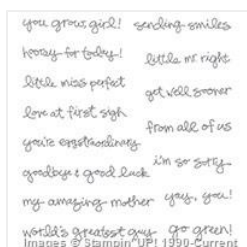 you grow, girl!
sending smiles
hooray for today!
little mr. right
little miss perfect
get well sooner
love at first sigh
from all of us
you're extraordinary
i'm so sorry
goodbye & good luck
yay, you!
my amazing mother
world's greatest guy
go green!
Images © Stampin' UP! 1990-Current